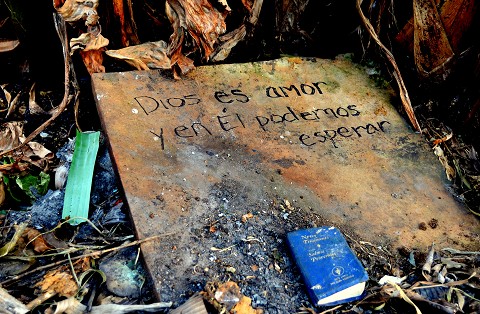 Dios es amor
y en Él podemos
esperar